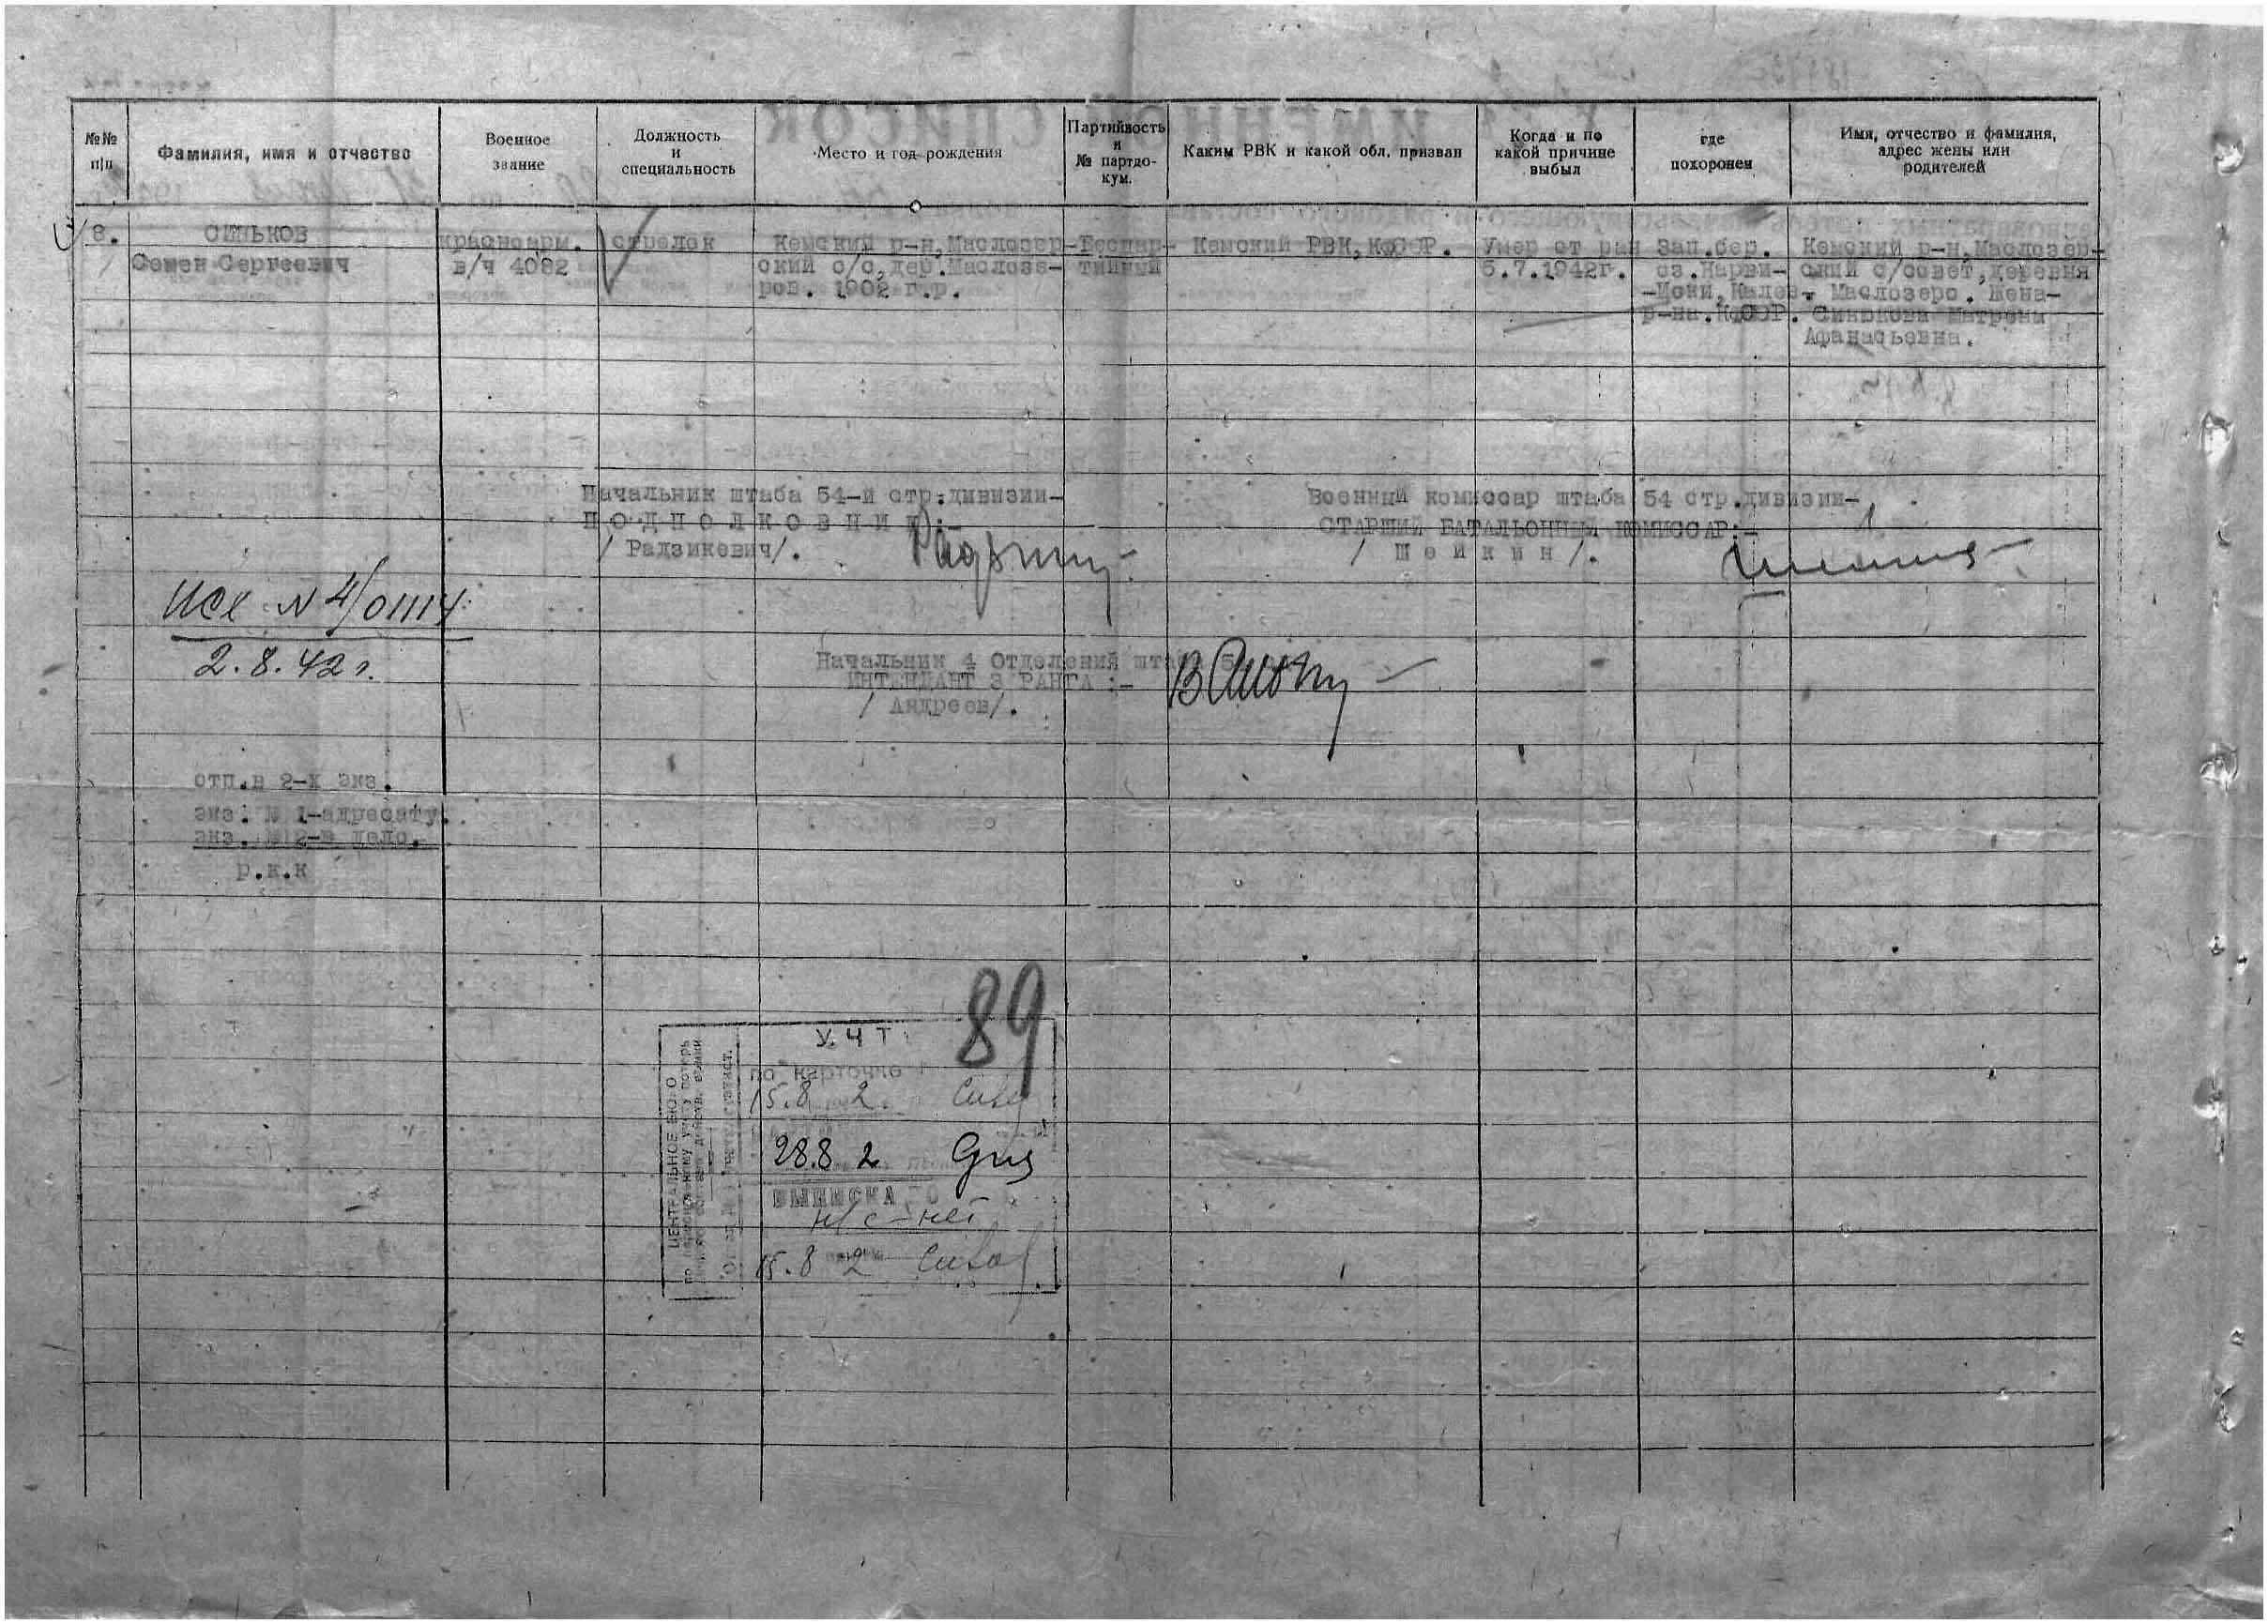 №№ п/п
Фамилия, имя и отчество
Военное звание
Должность и специальность
Место и год рождения
Партийность и № партдокум.
Каким РВК и какой обл. призван
Когда и по какой причине выбыл
где похоронен
Имя, отчество и фамилия, адрес жены или родителей
8.
СИНЬКОВ
Семен Сергеевич
красноарм.
в/ч 4082
стрелок
Кемский р-н, Маслозер-
ский с/с, дер. Маслозе-
ров. 1902 г.р.
Беспар-
тийный
Кемский РВК, КФССР.
Умер от ран
5.7.1942г.
Зап. бер.
оз.
р-на. КФССР.
Кемский р-н, Маслозер-
ский с/совет, деревня
Маслозеро. Жена-
Матрена
Афанасьевна.
Начальник штаба 54-й стр. дивизии-
ПОДПОЛКОВНИК:-
/ Радзикевич/.
Военный комиссар штаба 54 стр. дивизии-
СТАРШИЙ БАТАЛЬОННЫЙ КОМИССАР:-
/ Шейкин /.
Исх № 4/01114
2.8.42 г.
Начальник 4 Отделений штаба 5
ИНТЕНДАНТ 3 РАНГА :-
/ Андреев/.
отп. в 2-х экз.
экз. № 1-адресату.
экз. № 2-в дело.
р.к.к
89
УЧТ
по карточке
15.8 2.
28.8 2
ВЫПИСКА
н/с - нет
15.8 2
ЦЕНТРАЛЬНОЕ БЮРО